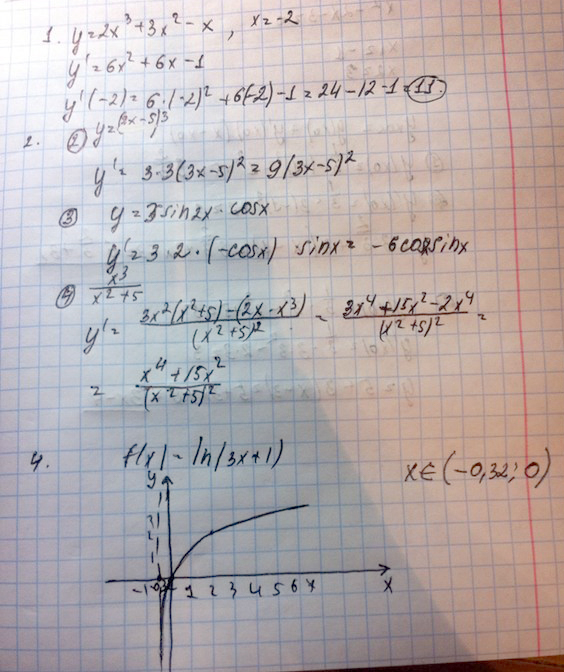 1. y=2x³+3x²-x, x=-2
y'=6x²+6x-1
y'(-2)=6·(-2)²+6(-2)-1=24-12-1=11.
2. ② y=(3x-5)³
y'= 3·3(3x-5)²=9(3x-5)²
③ y=3sin2x·cosx
y'=3·2·(-cosx)·sinx= -6cosxsinx
④ x³/(x²+5)
y'= (3x²(x²+5)-(2x·x³))/(x²+5)² = (3x⁴+15x²-2x⁴)/(x²+5)² =
= (x⁴+15x²)/(x²+5)²
4. f(x)=ln(3x+1)
x∈(-0,32; 0)
y
3
2
1
-1 1 2 3 4 5 6 x x